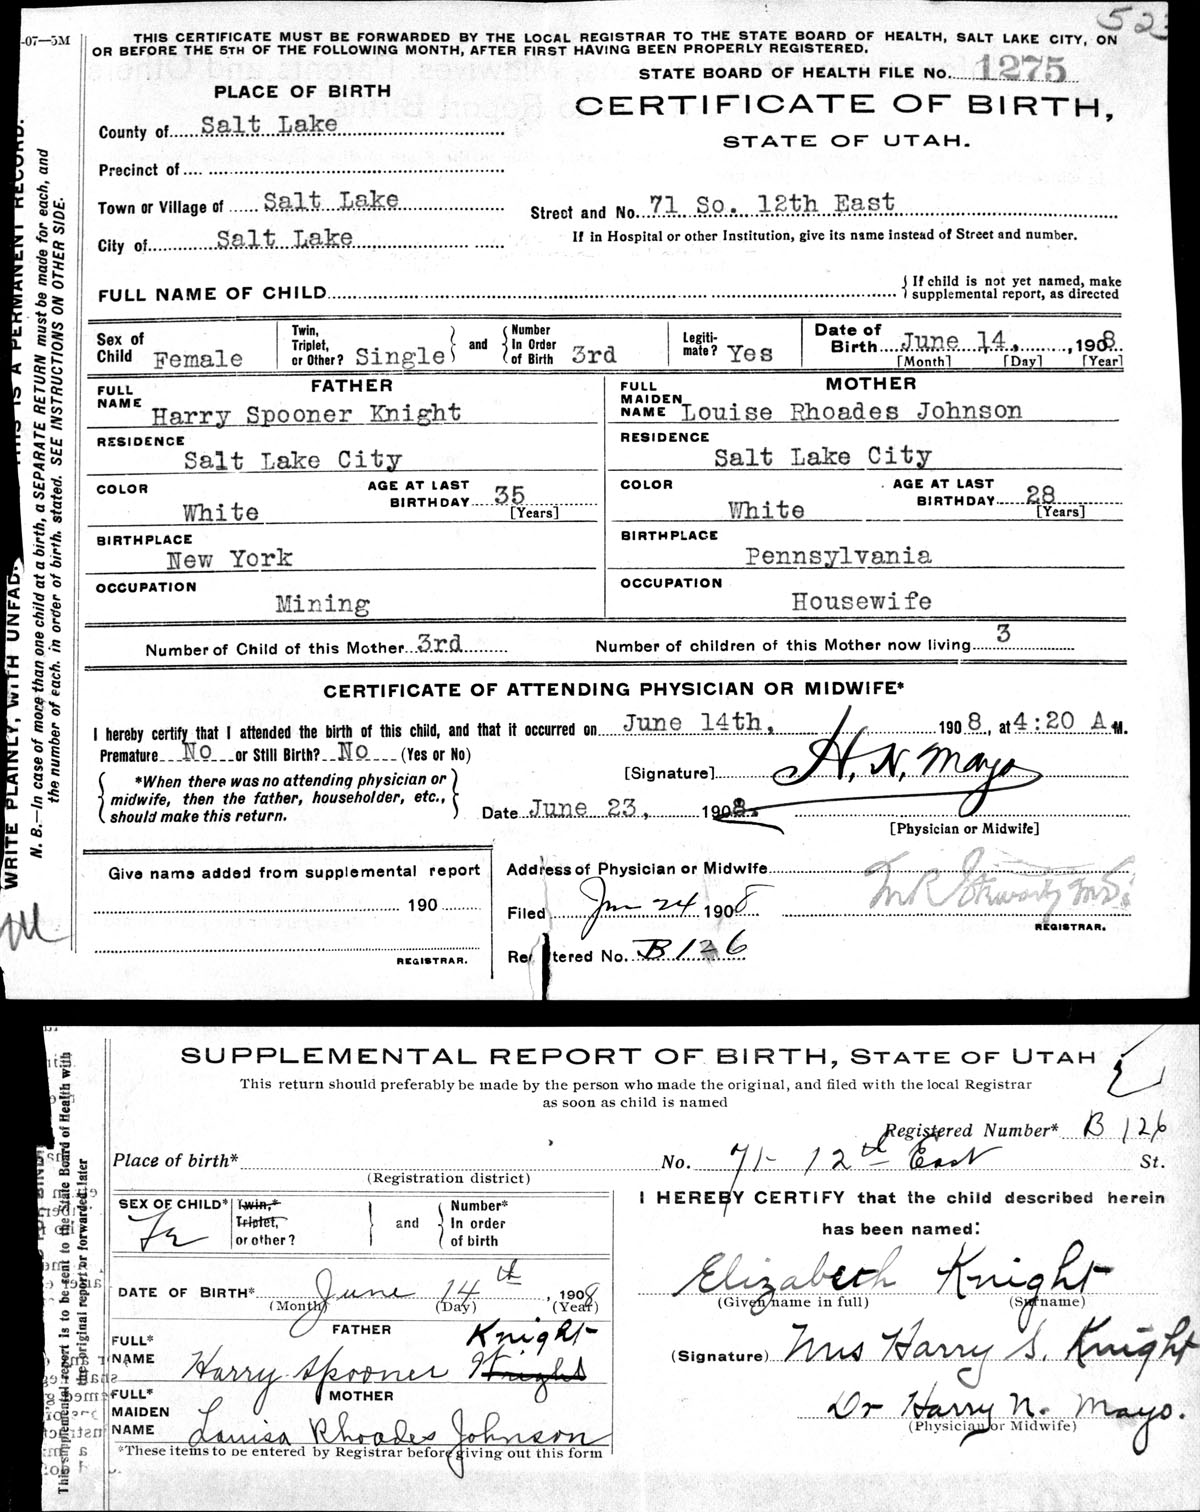 523
-07—5M
THIS CERTIFICATE MUST BE FORWARDED BY THE LOCAL REGISTRAR TO THE STATE BOARD OF HEALTH, SALT LAKE CITY, ON
OR BEFORE THE 5TH OF THE FOLLOWING MONTH, AFTER FIRST HAVING BEEN PROPERLY REGISTERED.
STATE BOARD OF HEALTH FILE No. 1275
PLACE OF BIRTH
CERTIFICATE OF BIRTH,
STATE OF UTAH.
County of Salt Lake
Precinct of
Town or Village of Salt Lake
Street and No. 71 So. 12th East
City of Salt Lake
If in Hospital or other Institution, give its name instead of Street and number.
FULL NAME OF CHILD
If child is not yet named, make
supplemental report, as directed
Sex of Child Female
Twin, Triplet, or Other? Single
and
Number In Order of Birth 3rd
Legiti-mate? Yes
Date of Birth June 14, 1908
[Month] [Day] [Year]
FATHER
FULL NAME Harry Spooner Knight
MOTHER
FULL MAIDEN NAME Louise Rhoades Johnson
RESIDENCE
Salt Lake City
RESIDENCE
Salt Lake City
COLOR
White
AGE AT LAST BIRTHDAY 35
[Years]
COLOR
White
AGE AT LAST BIRTHDAY 28
[Years]
BIRTHPLACE
New York
BIRTHPLACE
Pennsylvania
OCCUPATION
Mining
OCCUPATION
Housewife
Number of Child of this Mother 3rd
Number of children of this Mother now living 3
CERTIFICATE OF ATTENDING PHYSICIAN OR MIDWIFE*
I hereby certify that I attended the birth of this child, and that it occurred on June 14th, 1908, at 4:20 A M.
Premature No or Still Birth? No (Yes or No)
*When there was no attending physician or
midwife, then the father, householder, etc.,
should make this return.
[Signature] H. N. Mayo
Date June 23, 1908.
[Physician or Midwife]
Give name added from supplemental report
190
REGISTRAR.
Address of Physician or Midwife
Filed Jun 24 1908
REGISTRAR.
Re tered No. B 126
WRITE PLAINLY, WITH UNFAD THIS IS A PERMANENT RECORD.
N. B.—In case of more than one child at a birth, a SEPARATE RETURN must be made for each, and
the number of each, in order of birth, stated. SEE INSTRUCTIONS ON OTHER SIDE.
SUPPLEMENTAL REPORT OF BIRTH, STATE OF UTAH
This return should preferably be made by the person who made the original, and filed with the local Registrar
as soon as child is named
Registered Number* B 126
Place of birth*
(Registration district)
No. 71- 12th East St.
SEX OF CHILD* Fe
Twin,* Triplet, or other?
and
Number* In order of birth
I HEREBY CERTIFY that the child described herein
has been named:
Elizabeth Knight
(Given name in full) (Surname)
DATE OF BIRTH* June 14th, 1908
(Month) (Day) (Year)
FATHER
FULL* NAME Harry Spooner Knight Knight
(Signature) Mrs Harry S. Knight
MOTHER
FULL* MAIDEN NAME Louisa Rhoades Johnson
Dr Harry N. Mayo.
(Physician or Midwife)
*These items to be entered by Registrar before giving out this form
This supplemental report is to be sent to the State Board of Health with
the original report or forwarded later